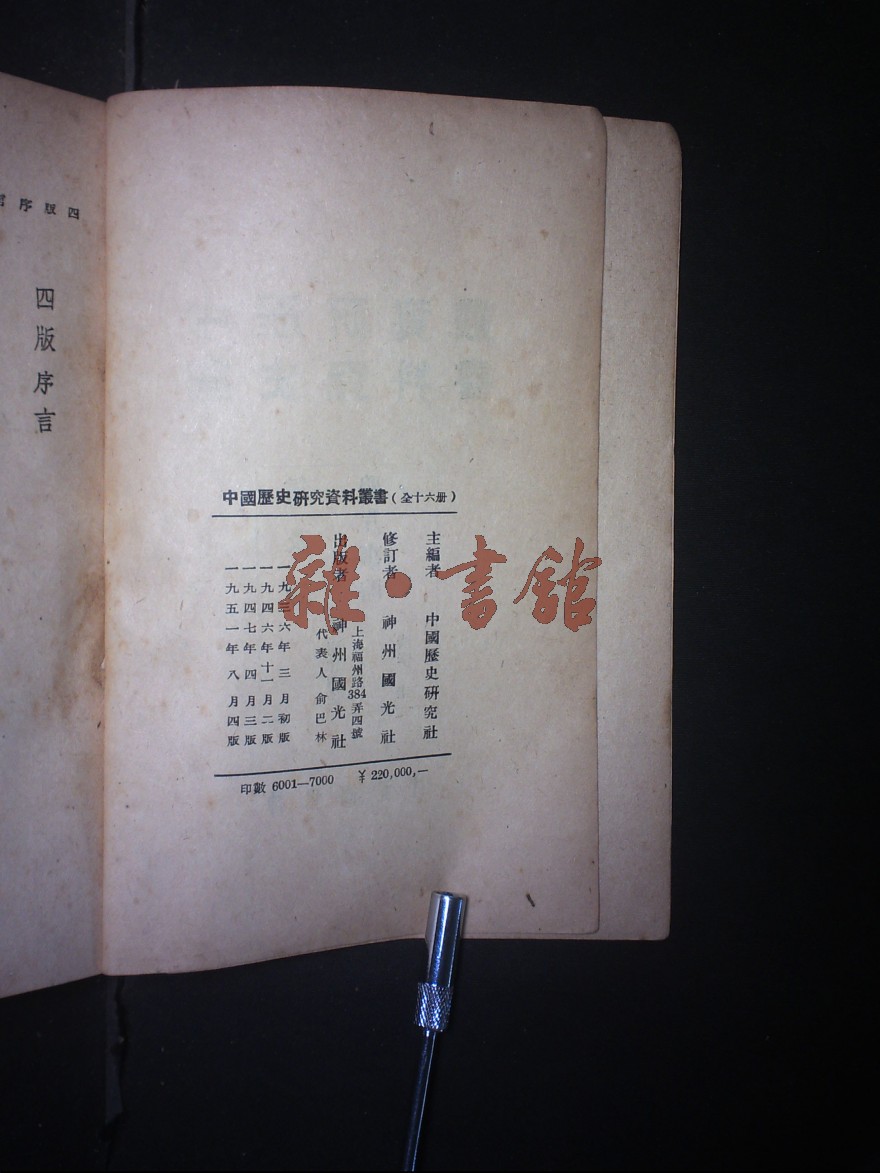 中國歷史研究資料叢書（全十六册）
主編者 中國歷史研究社
修訂者 神州國光社
上海福州路384弄四號
出版者 神州國光社
代表人 俞巴林
一九三六年三月初版
一九四六年十一月二版
一九四七年四月三版
一九五一年八月四版
印數 6001—7000 ￥220,000,—
四版序
四版序言
雜·書館